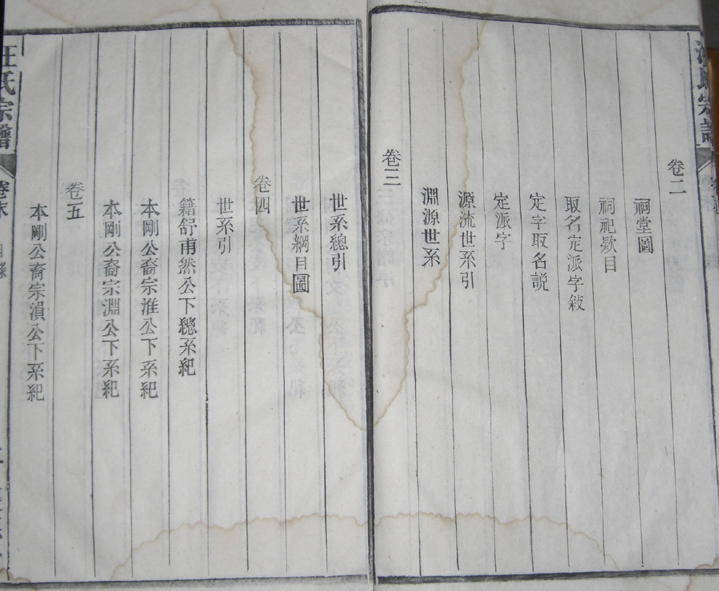 卷二
祠堂圖
祠祀欵目
取名定派字敍
定字取名説
定派字
源流世系引
淵源世系
卷三
世系總引
世系綱目圖
卷四
世系引
籍舒甫然公下總系紀
本剛公裔宗淮公下系紀
本剛公裔宗淵公下系紀
卷五
本剛公裔宗濆公下系紀
汪氏宗譜
目錄